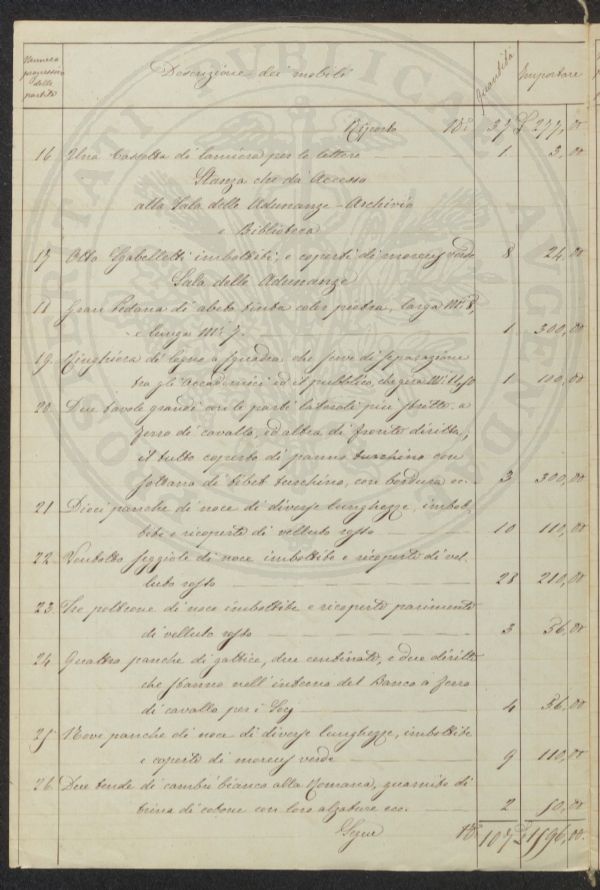 Numero progressivo delle partite
Descrizione dei mobili
Quantità
Importare
Riporto N.i 37 £ 277,00
16 Una Cassetta di lamiera per le lettere 1 3,00
Stanza che dà Accesso
alla Sala delle Adunanze - Archivio
e Biblioteca
17 Otto Sgabelletti imbottiti, e coperti di moreus verde 8 24,00
Sala delle Adunanze
18 Gran Pedana di abeto tinta color pietra, larga M.i 8,
e lunga M.i 7. 1 300,00
19. Ringhiera di legno a squadra che serve di separazione
tra gli Accademici ed il pubblico, che gira M.i 11,50 1 100,00
20. Due tavole grandi con le parti laterali più strette a
ferro di cavallo, ed altra di fronte diritta,
il tutto coperto di panno turchino con
sottana di tibet turchino, con bordura ec. 3 300,00
21. Dieci panche di noce di diverse lunghezze, imbot-
tite e ricoperte di velluto rosso 10 110,00
22. Ventotto seggiole di noce imbottite e ricoperte di vel-
luto rosso 28 210,00
23. Tre poltrone di noce imbottite e ricoperte parimente
di velluto rosso 3 56,00
24. Quattro panche di gattice, due centinate, e due diritte
che stanno nell'interno del Banco a ferro
di cavallo per i Socj 4 56,00
25. Nove panche di noce di diverse lunghezze, imbottite
e coperte di moreus verde 9 110,00
26. Due tende di cambrì bianco alla Romana, guarnite di
trina di cotone con loro alzature ecc. 2 50,00
Segue N.i 107 £ 1596,00.
PROSPERITATI PUBLICAE AUGENDAE